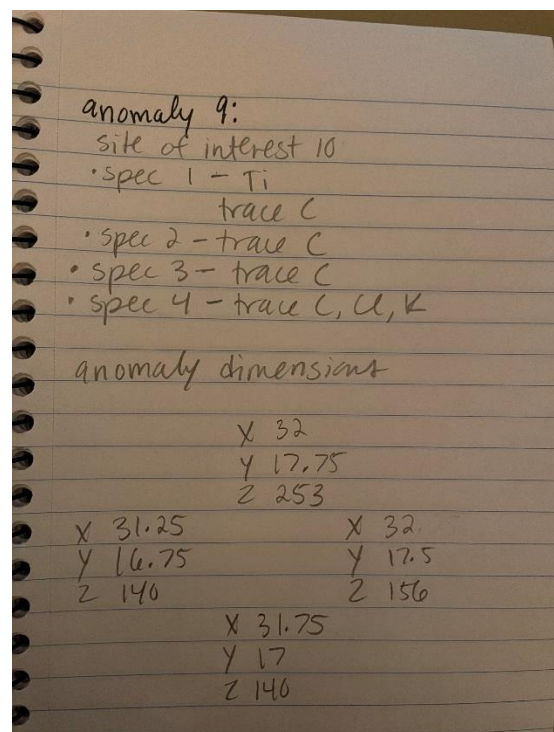 anomaly 9:
site of interest 10
• spec 1 - Ti
trace C
• spec 2 - trace C
• spec 3 - trace C
• spec 4 - trace C, Cl, K
anomaly dimensions
X 32
Y 17.75
Z 253
X 31.25
Y 16.75
Z 140
X 32
Y 17.5
Z 156
X 31.75
Y 17
Z 140